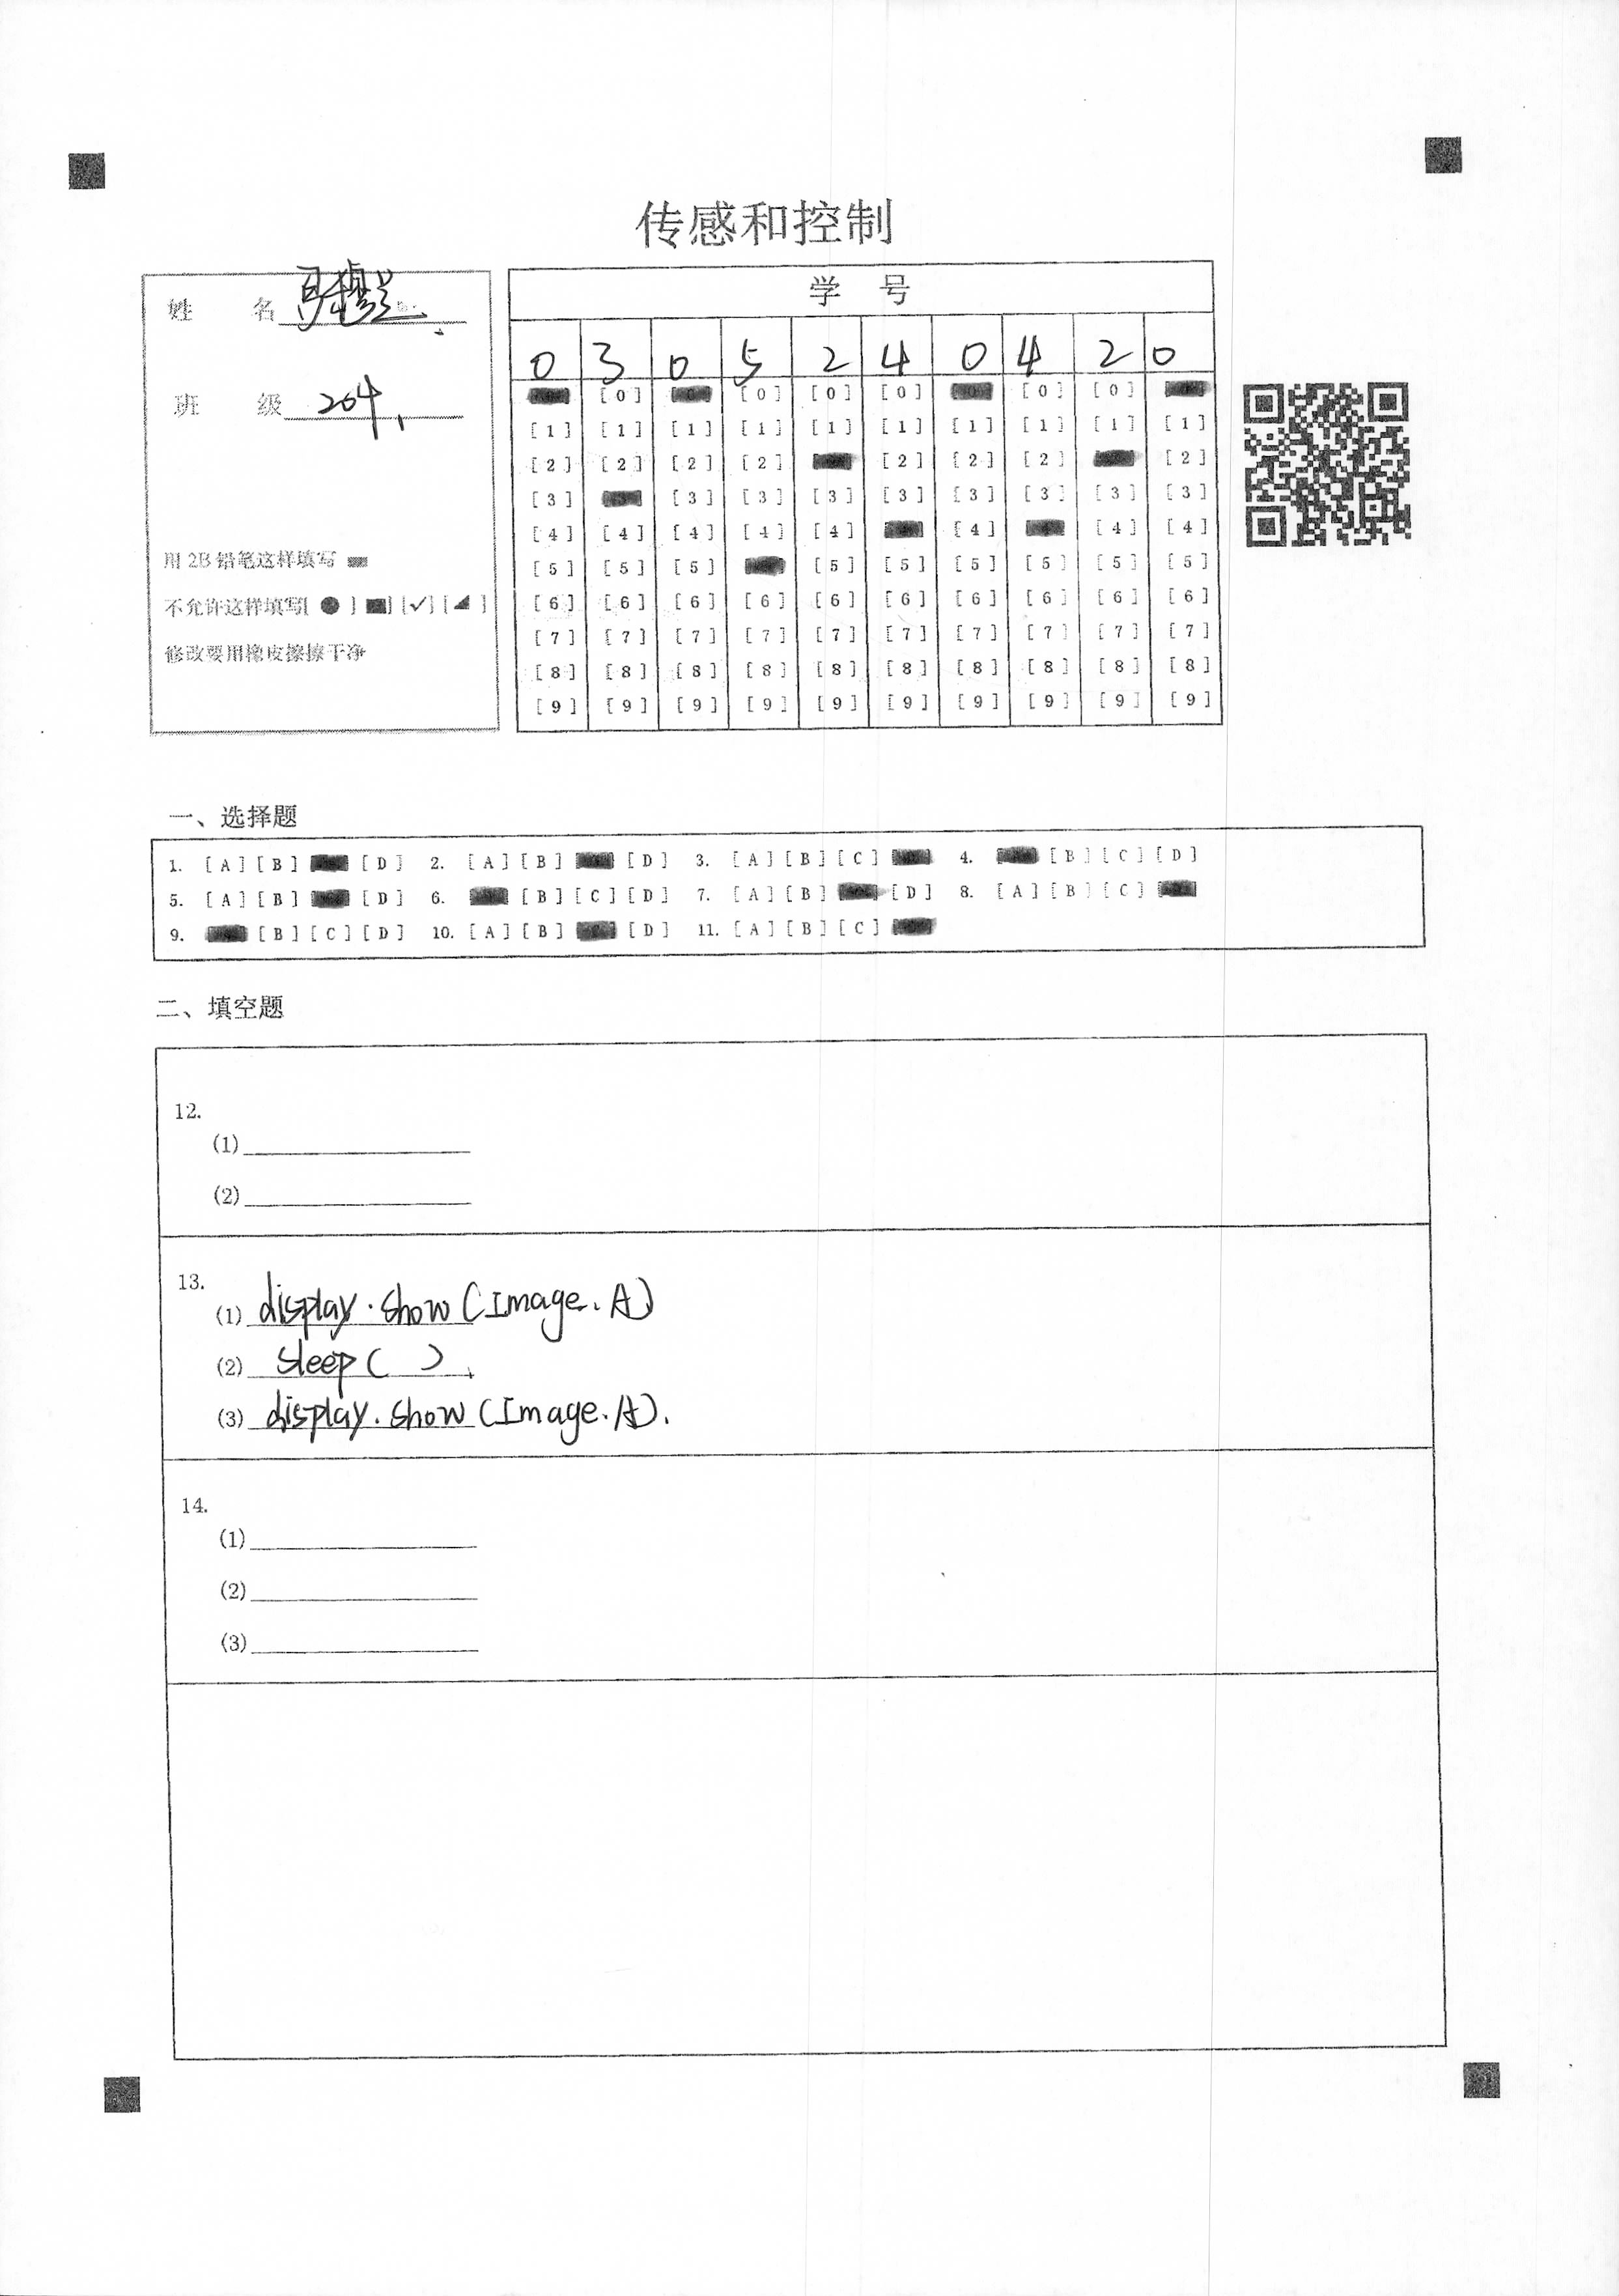 传感和控制
姓 名
班 级 204.
用 2B 铅笔这样填写
不允许这样填写[ ● ] ■] [✓] [◢ ]
修改要用橡皮擦擦干净
学 号
0 3 0 5 2 4 0 4 2 0
[0] [0] [0] [0] [0] [0]
[1] [1] [1] [1] [1] [1] [1] [1] [1] [1]
[2] [2] [2] [2] [2] [2] [2] [2]
[3] [3] [3] [3] [3] [3] [3] [3] [3]
[4] [4] [4] [4] [4] [4] [4] [4]
[5] [5] [5] [5] [5] [5] [5] [5] [5]
[6] [6] [6] [6] [6] [6] [6] [6] [6] [6]
[7] [7] [7] [7] [7] [7] [7] [7] [7] [7]
[8] [8] [8] [8] [8] [8] [8] [8] [8] [8]
[9] [9] [9] [9] [9] [9] [9] [9] [9] [9]
一、选择题
1. [A] [B] [D] 2. [A] [B] [D] 3. [A] [B] [C] 4. [B] [C] [D]
5. [A] [B] [D] 6. [B] [C] [D] 7. [A] [B] [D] 8. [A] [B] [C]
9. [B] [C] [D] 10. [A] [B] [D] 11. [A] [B] [C]
二、填空题
12.
(1)
(2)
13.
(1) display.show(Image.A)
(2) sleep( ).
(3) display.show(Image.A).
14.
(1)
(2)
(3)